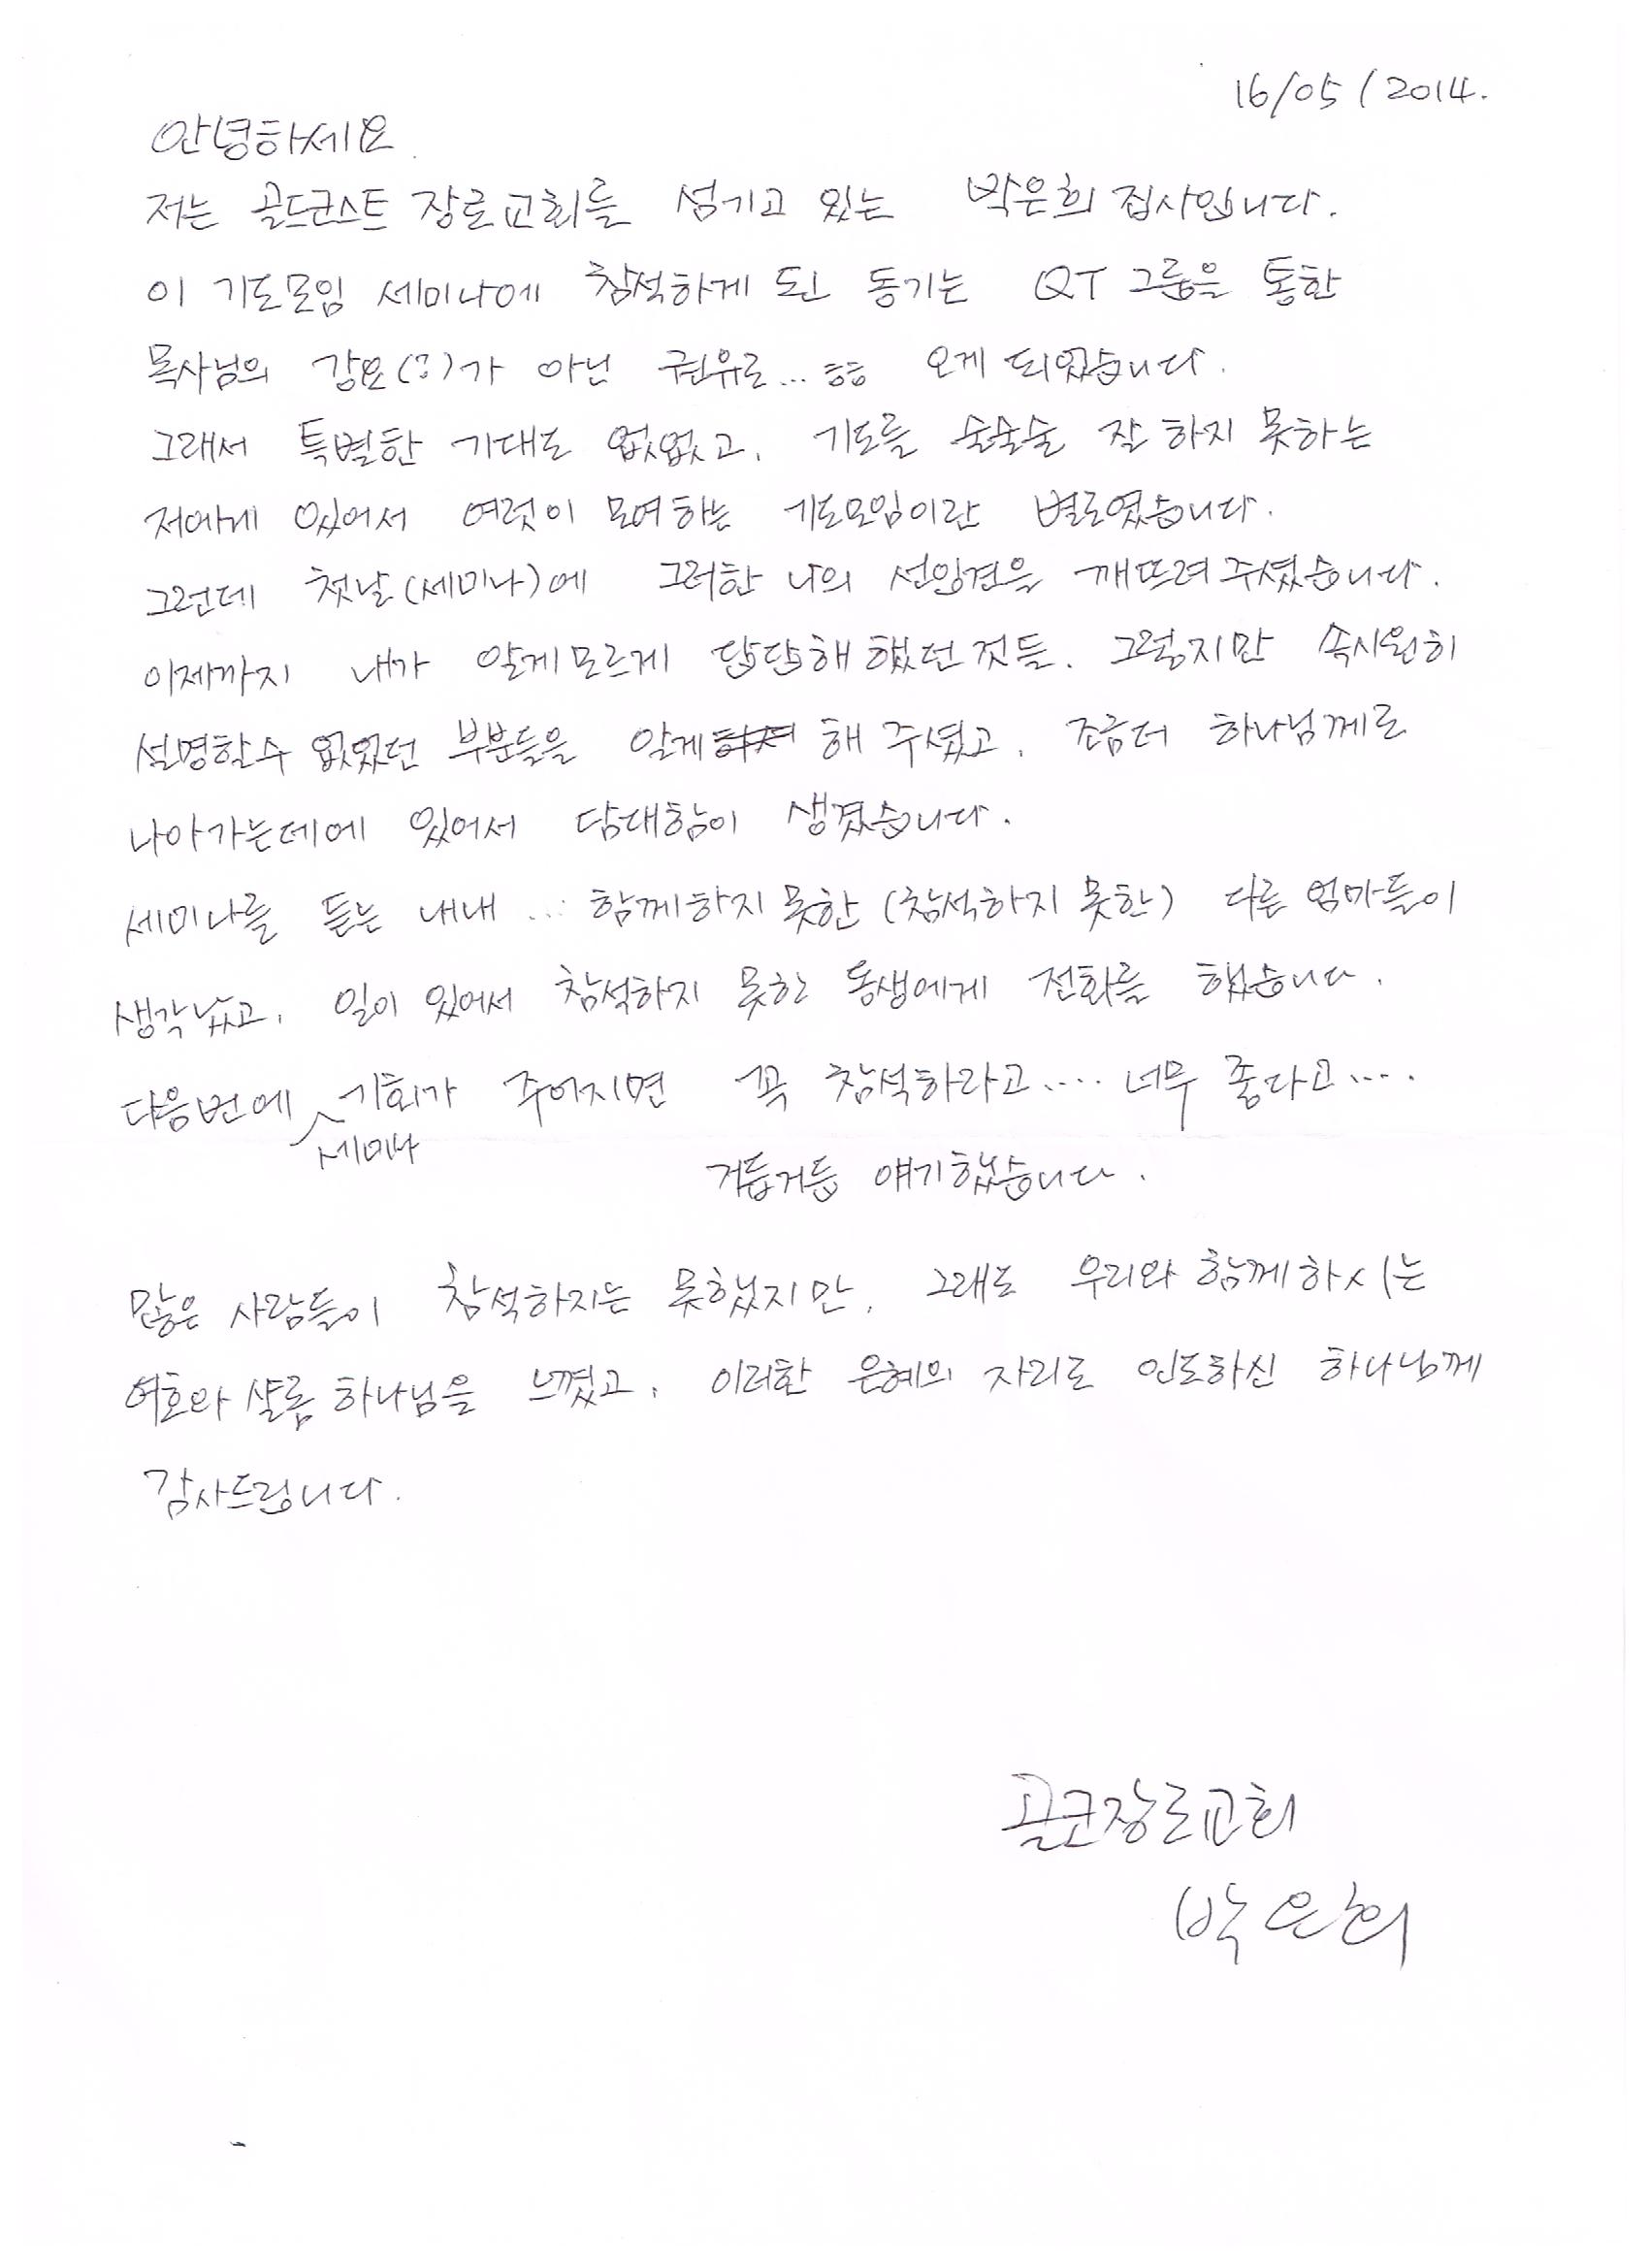 16/05/2014.
안녕하세요
저는 골드코스트 장로교회를 섬기고 있는 박은희 집사입니다.
이 기도모임 세미나에 참석하게 된 동기는 QT 그룹을 통한
목사님의 강요(?)가 아닌 권유로... ㅎㅎ 오게 되었습니다.
그래서 특별한 기대도 없었고, 기도를 술술술 잘 하지 못하는
저에게 있어서 여럿이 모여하는 기도모임이란 별로였습니다.
그런데 첫날(세미나)에 그러한 나의 선입견을 깨뜨려 주셨습니다.
이제까지 내가 알게모르게 답답해 했던 것들, 그렇지만 속시원히
설명할수 없었던 부분들을 알게 해 주셨고, 조금더 하나님께로
나아가는데에 있어서 담대함이 생겼습니다.
세미나를 듣는 내내 ... 함께하지 못한 (참석하지 못한) 다른 엄마들이
생각났고, 일이 있어서 참석하지 못한 동생에게 전화를 했습니다.
다음번에 세미나 기회가 주어지면 꼭 참석하라고.... 너무 좋다고....
거듭거듭 얘기했습니다.
많은 사람들이 참석하지는 못했지만, 그래도 우리와 함께하시는
여호와 샬롬 하나님을 느꼈고, 이러한 은혜의 자리로 인도하신 하나님께
감사드립니다.
골코장로교회
박은희